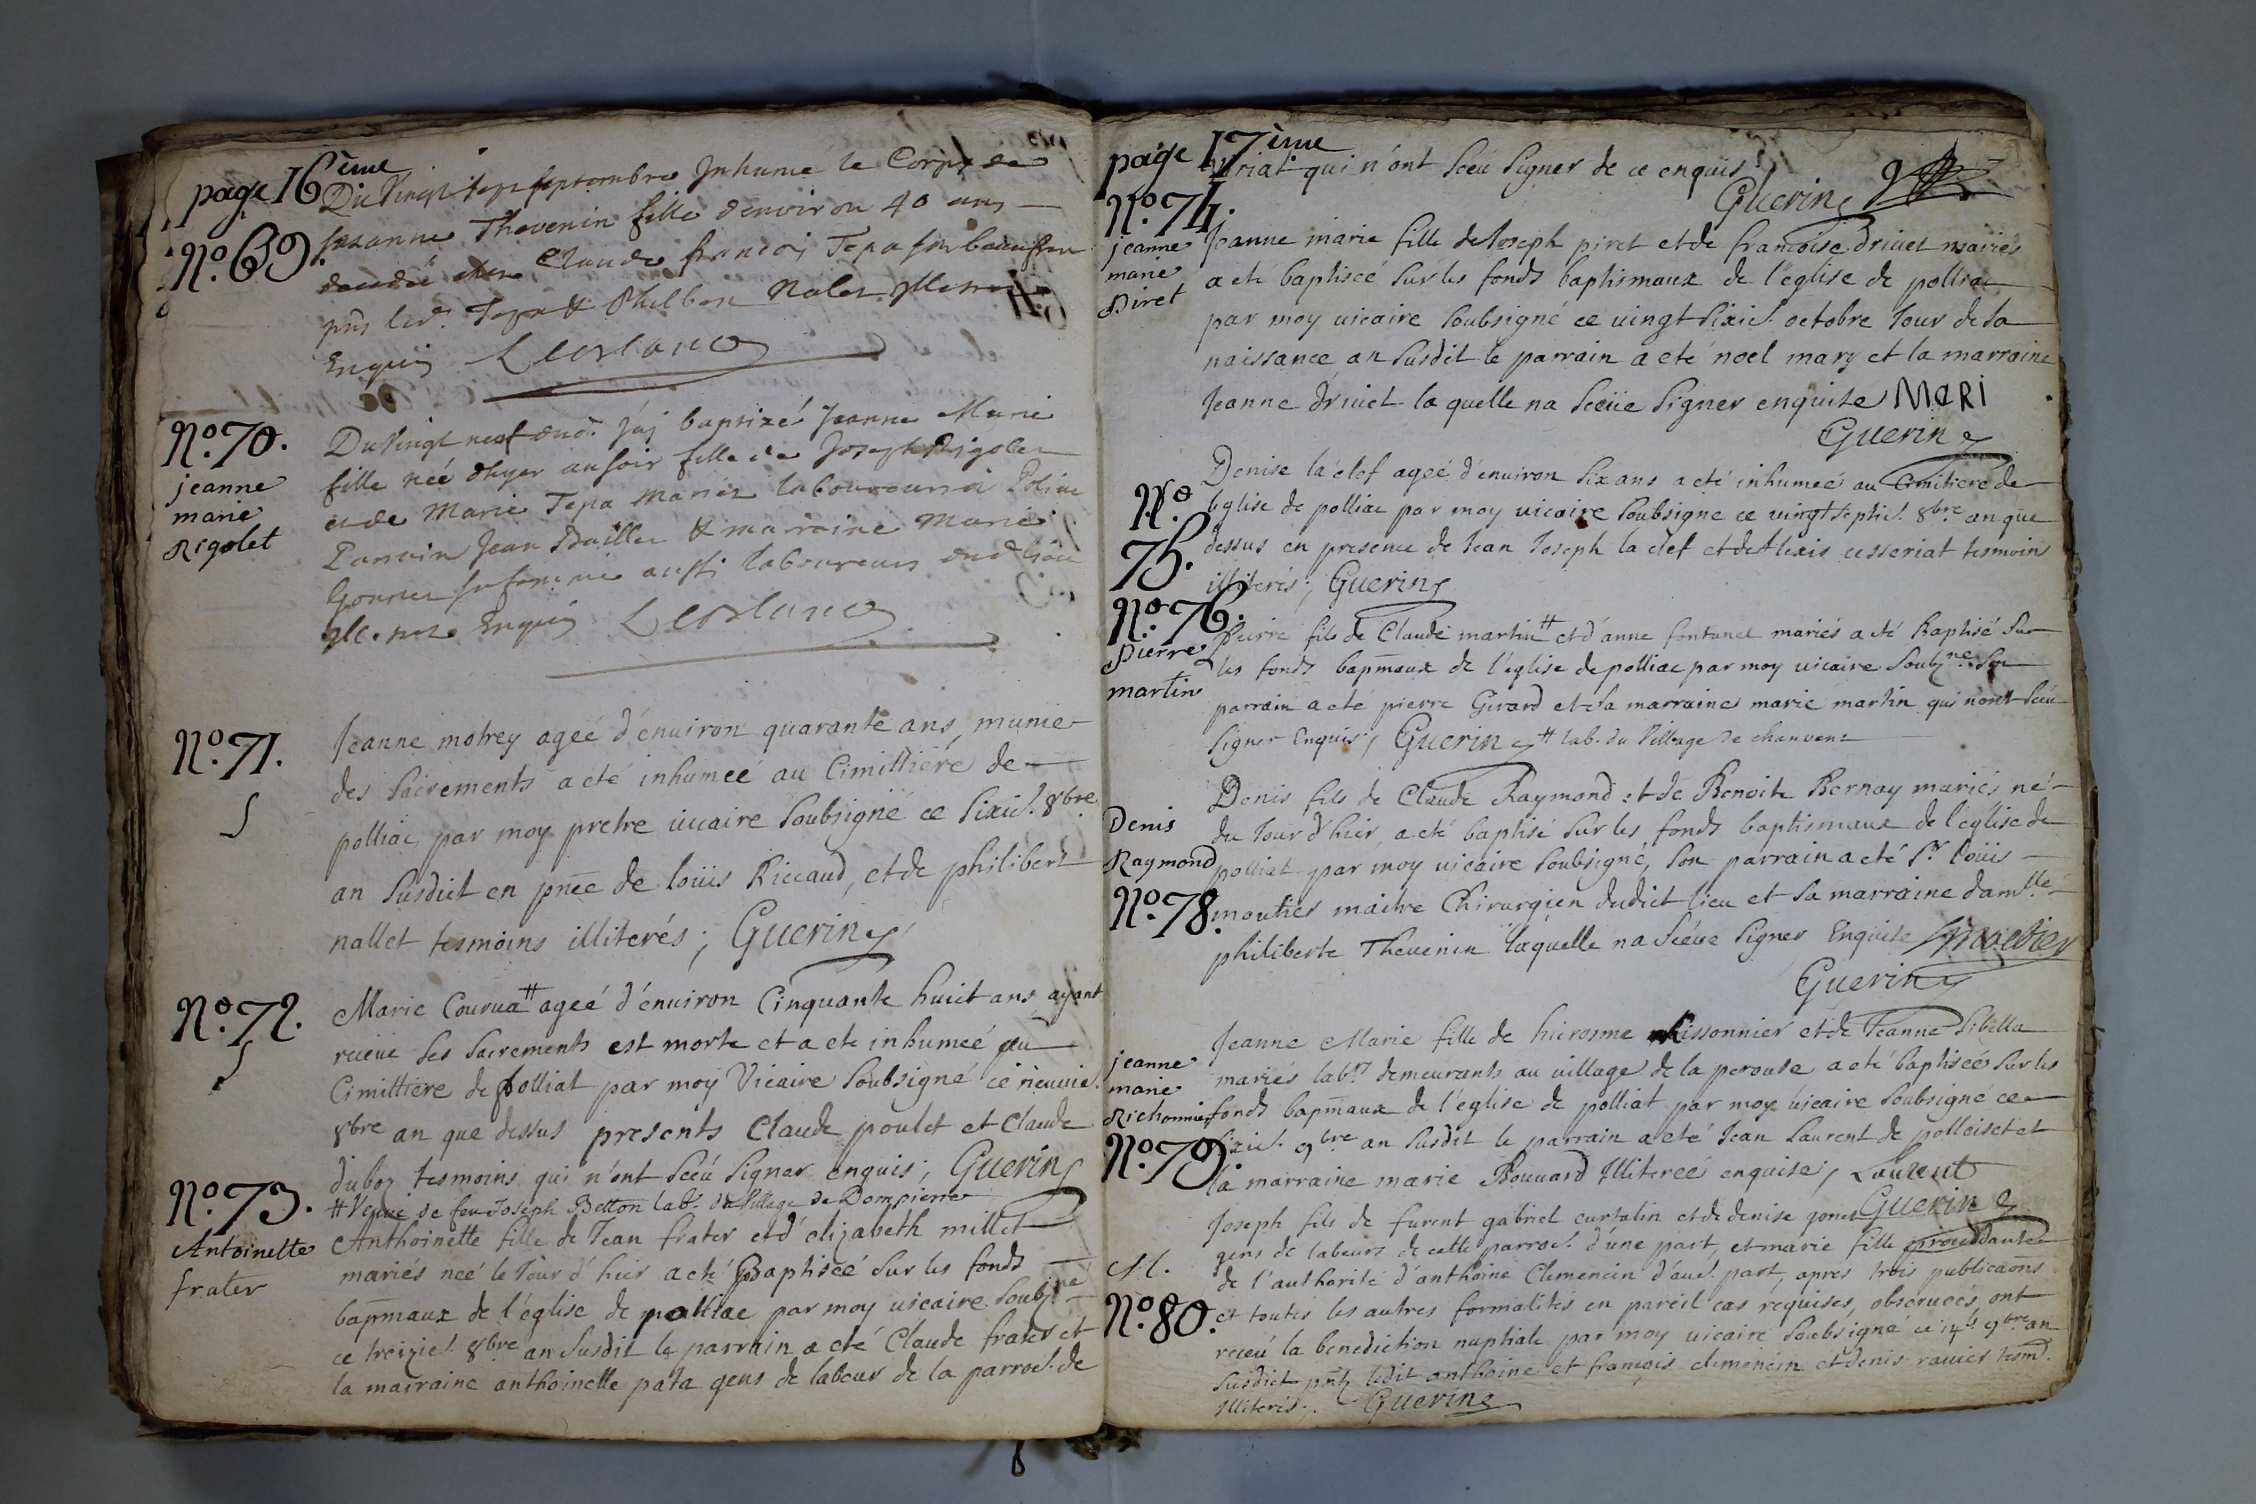 page 16ème
Du Vingt sept septembre Inhumé le Corps de
No. 69. suzanne Thevenin fille d'environ 40 ans
Claude francois Tepa son beaufrere
Tepa & Philber Nalet
Enquis Leblanc
No. 70. Du Vingt neuf dud. j'ay baptizé Jeanne Marie
jeanne marie Rigolet
fille née d'hyer au soir fille de Joseph Rigolet
et de Marie Tepa mariez laboureurs a Poliac
Parrain Jean Bailler & marraine Marie
Gonnet sa femme aussi laboureurs dud lieu
Enquis Leblanc
No. 71. Jeanne motrey ageé d'environ quarante ans, munie
des sacrements a eté inhumeé au Cimittiere de
polliac par moy pretre vicaire soubsigné ce sixie. 8bre
an susdict en pnce de loüis Riccaud, et de philibert
nallet tesmoins illiterés; Guerin
No. 72. Marie Courva # ageé d'environ Cinquante huict ans ayant
receue ses sacrements est morte et a ete inhumeé au
Cimittiere de polliat par moy Vicaire soubsigné ce neuvie.
8bre an que dessus presents Claude poulet et Claude
duboz tesmoins qui n'ont sceü signer enquis; Guerin
# Veuve de feu Joseph Betton lab. du village de Dompierre
No. 73. Anthoinette fille de Jean frater et d'elizabeth millet
Antoinette frater
mariés neé le Jour d'hier a eté Baptiseé sur les fonds
bapmaux de l'église de polliac par moy vicaire soubzne
ce treizie. 8bre an susdit le parrain a eté Claude frater et
la marraine anthoinette pata gens de labeur de la parroe. de
page 17ème
riat qui n'ont sceü signer de ce enquis
Guerin
No. 74. Jeanne marie fille de Joseph piret et de francoise drivet mariés
jeanne marie Piret
a eté baptiseé sur les fonds baptismaux de l'église de polliac
par moy vicaire soubsigné ce vingt sixie. octobre Jour de sa
naissance an susdit le parrain a eté noel mary et la marraine
Jeanne drivet laquelle na sceüe signer enquise MARI
Guerin
No. 75. Denise la clef ageé d'environ six ans a eté inhumeé au Cimitiere de
leglise de polliac par moy vicaire soubsigne ce vingt septie. 8bre an que
dessus en presence de Jean Joseph la clef et de Alexis cesseriat tesmoins
illiterés; Guerin
No. 76. Pierre fils de Claude martin # et d'anne fontanel mariés a eté Baptisé sur
Pierre martin
les fonds bapmaux de l'église de polliac par moy vicaire soubzne son
parrain a eté pierre Girard et sa marraine marie martin qui n'ont sceü
signer Enquis; Guerin # lab. du Village de chanvent
Denis fils de Claude Raymond et de Benoite Bernay mariés né
Denis Raymond
du Jour d'hier a eté baptisé sur les fonds baptismaux de l'église de
polliat par moy vicaire soubsigné, son parrain a eté Sr. loüis
No. 78. moutier maitre Chirurgien dudict lieu et sa marraine damlle
philiberte Thevenin laquelle na sceüe signer Enquise Moutier
Guerin
Jeanne Marie fille de hierosme Rissonnier et de Jeanne Sibella
jeanne marie Richonnier
mariés labrs demeurants au village de la perouse a eté baptiseé sur les
fonds bapmaux de l'église de polliat par moy vicaire soubsigné ce
No. 79. sixie. 9bre an susdit le parrain a eté Jean Laurent de polloiset et
la marraine marie Bouvard Illitereé enquise; Laurent
Guerin
Joseph fils de furent gabriel curtalin et de denise gonet
gens de labeurs de cette parroe. d'une part, et marie fille proceddante
M.
de l'authorité d'anthoine Clemencin d'aue. part, apres trois publicaons
No. 80. et toutes les autres formalités en pareil cas requises, observeés, ont
receü la benediction nuptiale par moy vicaire soubsigné ce 14e 9bre an
susdict pnts ledit anthoine et françois clemencin et denis ravier tesm.
Illiterés;. Guerin